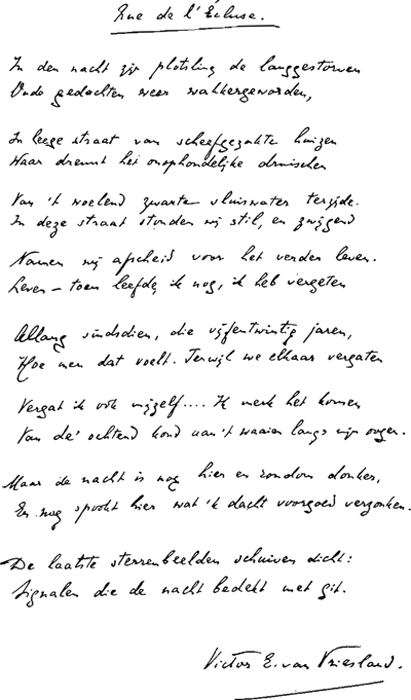 Rue de l'Écluse.
In den nacht zijn plotsling de langgestorven
Oude gedachten weer wakkergeworden,
In leege straat van scheefgezakte huizen
Waar dreunt het onophoudelijke druischen
Van 't woelend zwarte sluiswater terzijde.
In deze straat stonden wij stil, en zwijgend
Namen wij afscheid voor het verder leven.
Leven – toen leefde ik nog, ik heb vergeten
Allang sindsdien, die vijfentwintig jaren,
Hoe men dat voelt. Terwijl we elkaar vergaten
Vergat ik ook mijzelf.... Ik merk het komen
Van de' ochtend koud aan 't waaien langs mijn oogen.
Maar de nacht is nog hier en rondom donker,
En nog spookt hier wat 'k dacht voorgoed verzonken.
De laatste sterrenbeelden schuiven dicht:
Signalen die de nacht bedekt met git.
Victor E. van Vriesland.